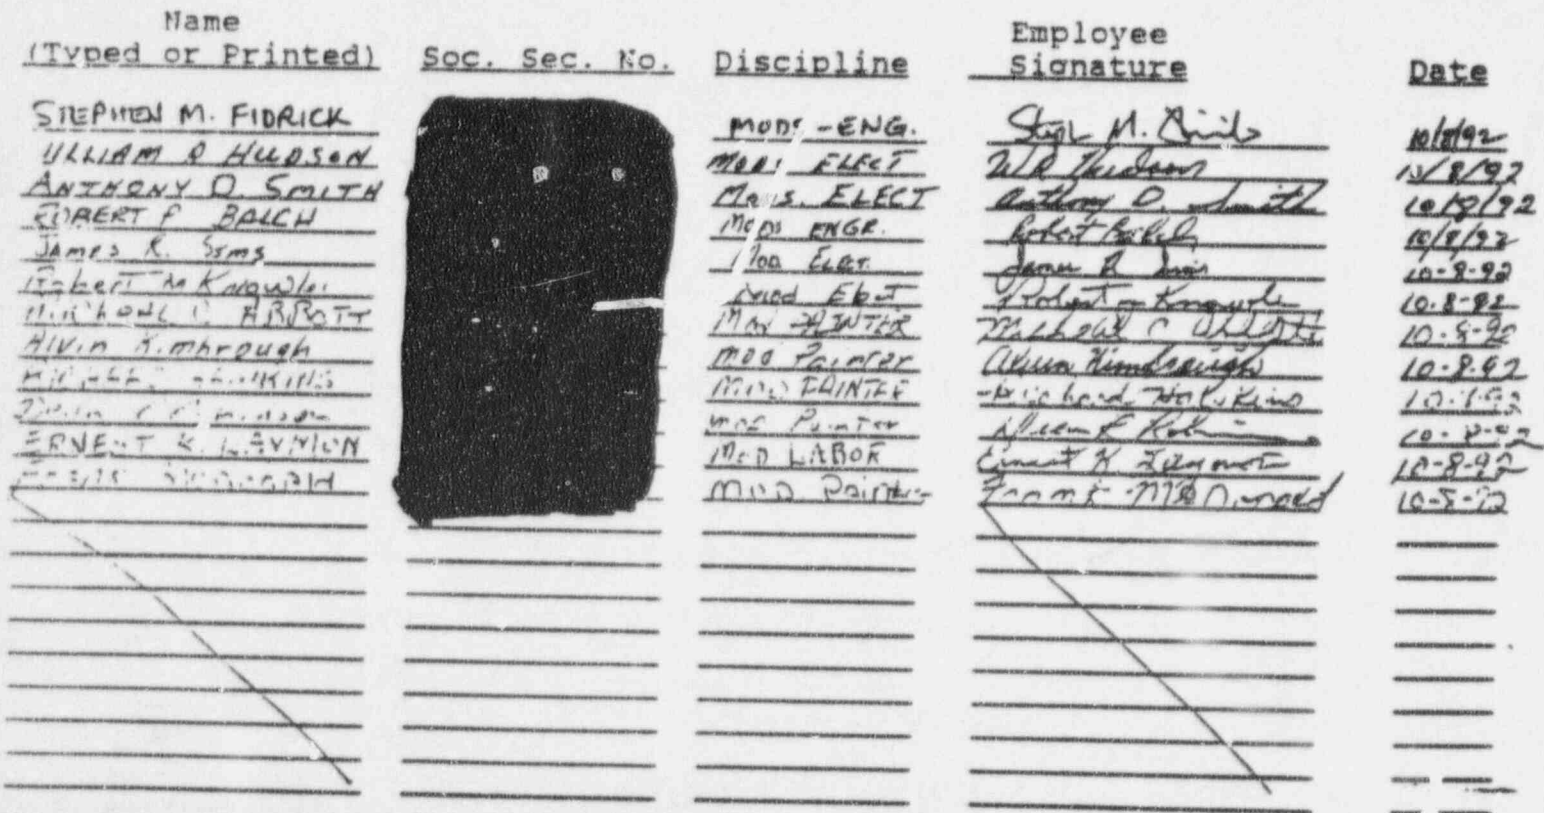 Name
(Typed or Printed) Soc. Sec. No. Discipline Employee Signature Date
STEPHEN M. FIDRICK MODS-ENG. 10/8/92
WILLIAM R HUDSON MODS ELECT W R Hudson 10/8/92
ANTHONY D. SMITH MODS. ELECT Anthony D. Smith 10/8/92
ROBERT P BALCH MODS ENGR. Robert Balch 10/8/92
JAMES R. SIMS MOD ELECT. James R Sims 10-8-92
Robert M Knowles Mod Elect Robert M Knowles 10-8-92
MICHAEL C ABBOTT MOD PAINTER Michael C Abbott 10-8-92
Alvin Kimbrough MOD Painter Alvin Kimbrough 10-8-92
MOD PAINTER 10-8-92
MOD Painter 10-8-92
ERNEST K. LAYMON MOD LABOR Ernest K 10-8-92
MOD Painter Frank 10-8-92